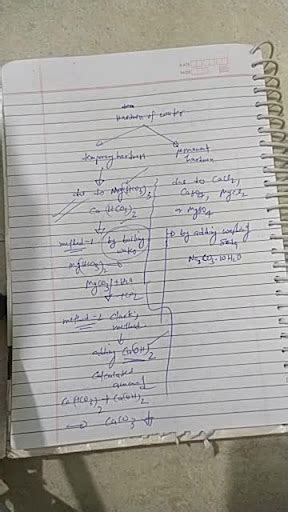 DATE
PAGE
Hardness of water
temporary hardness
permanent hardness
due to Mg(HCO3)2
Ca(HCO3)2
due to CaCl2,
CaSO4, MgCl2
or MgSO4
method-1 by boiling
water
Mg(HCO3)2
↓
→ by adding washing
soda
Na2CO3·10H2O
method-2 Clark's
method
↓
adding Ca(OH)2
calculated
amount
Ca(HCO3)2 + Ca(OH)2
⟹ CaCO3 ↓